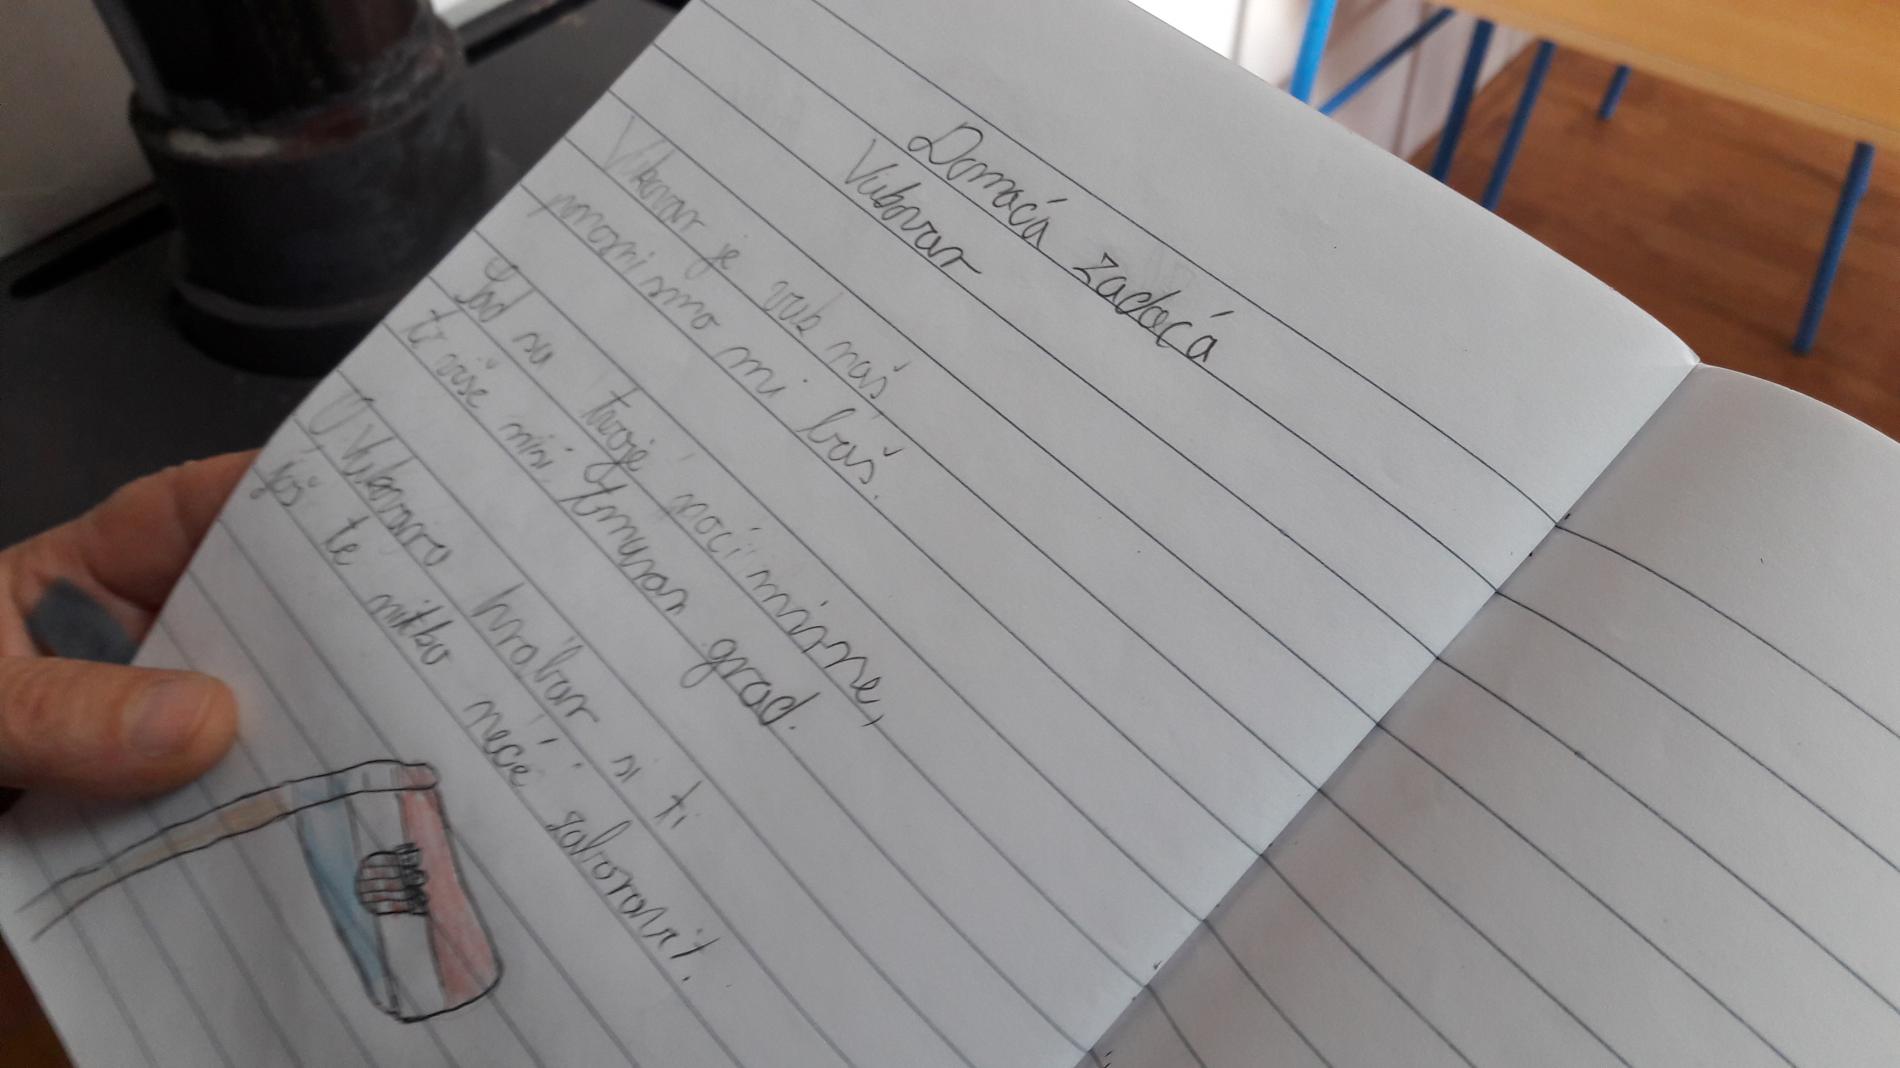 Domaća zadaća
Vukovar
Vukovar je vuk naš,
ponosni smo mi baš.
Sad su tvoje noći mirne,
ti više nisi tmuran grad.
U Vukovaru hrabar si ti
još te nitko neće zaboravit.